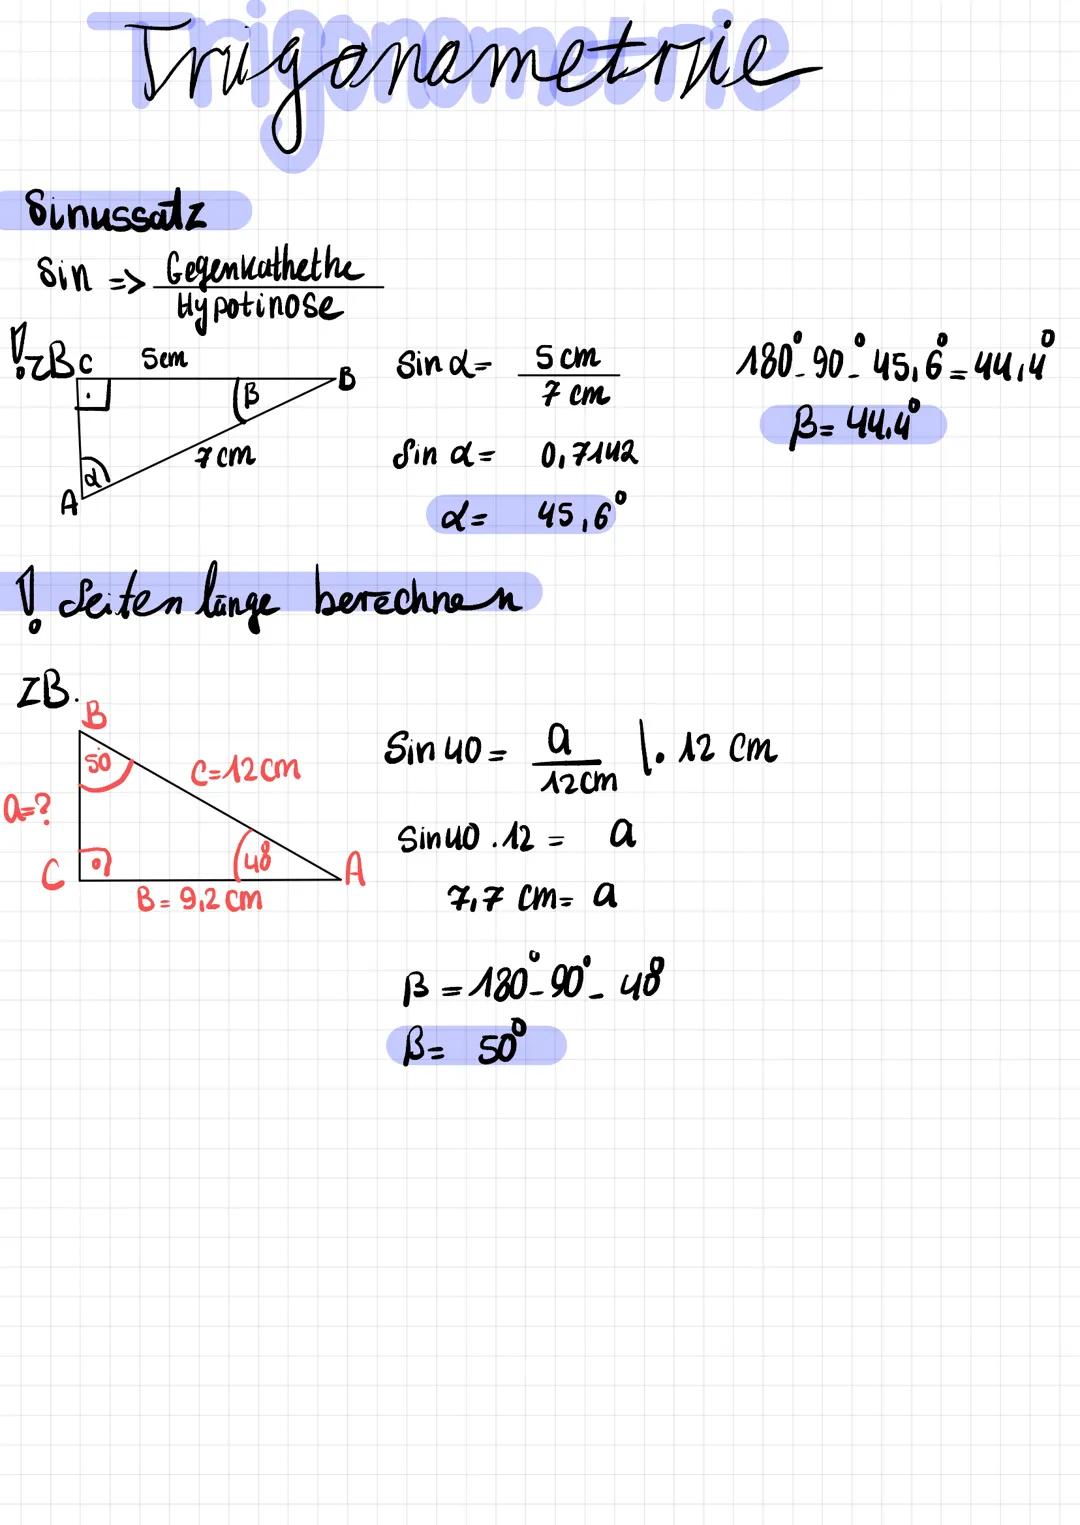 Trigonometrie
Sinussatz
Sin => Gegenkathethe
Hypotinose
! zB C 5cm B
β
7 cm
α
A
Sin α = 5 cm
7 cm
Sin α = 0,7142
α = 45,6°
180° - 90° - 45,6° = 44,4°
β = 44,4°
! Seiten länge berechnen
ZB.
B
50
C=12cm
a=?
C 48 A
B = 9,2 cm
Sin 40 = a |. 12 cm
12cm
Sin40 . 12 = a
7,7 cm = a
β = 180° - 90° - 48
β = 50°